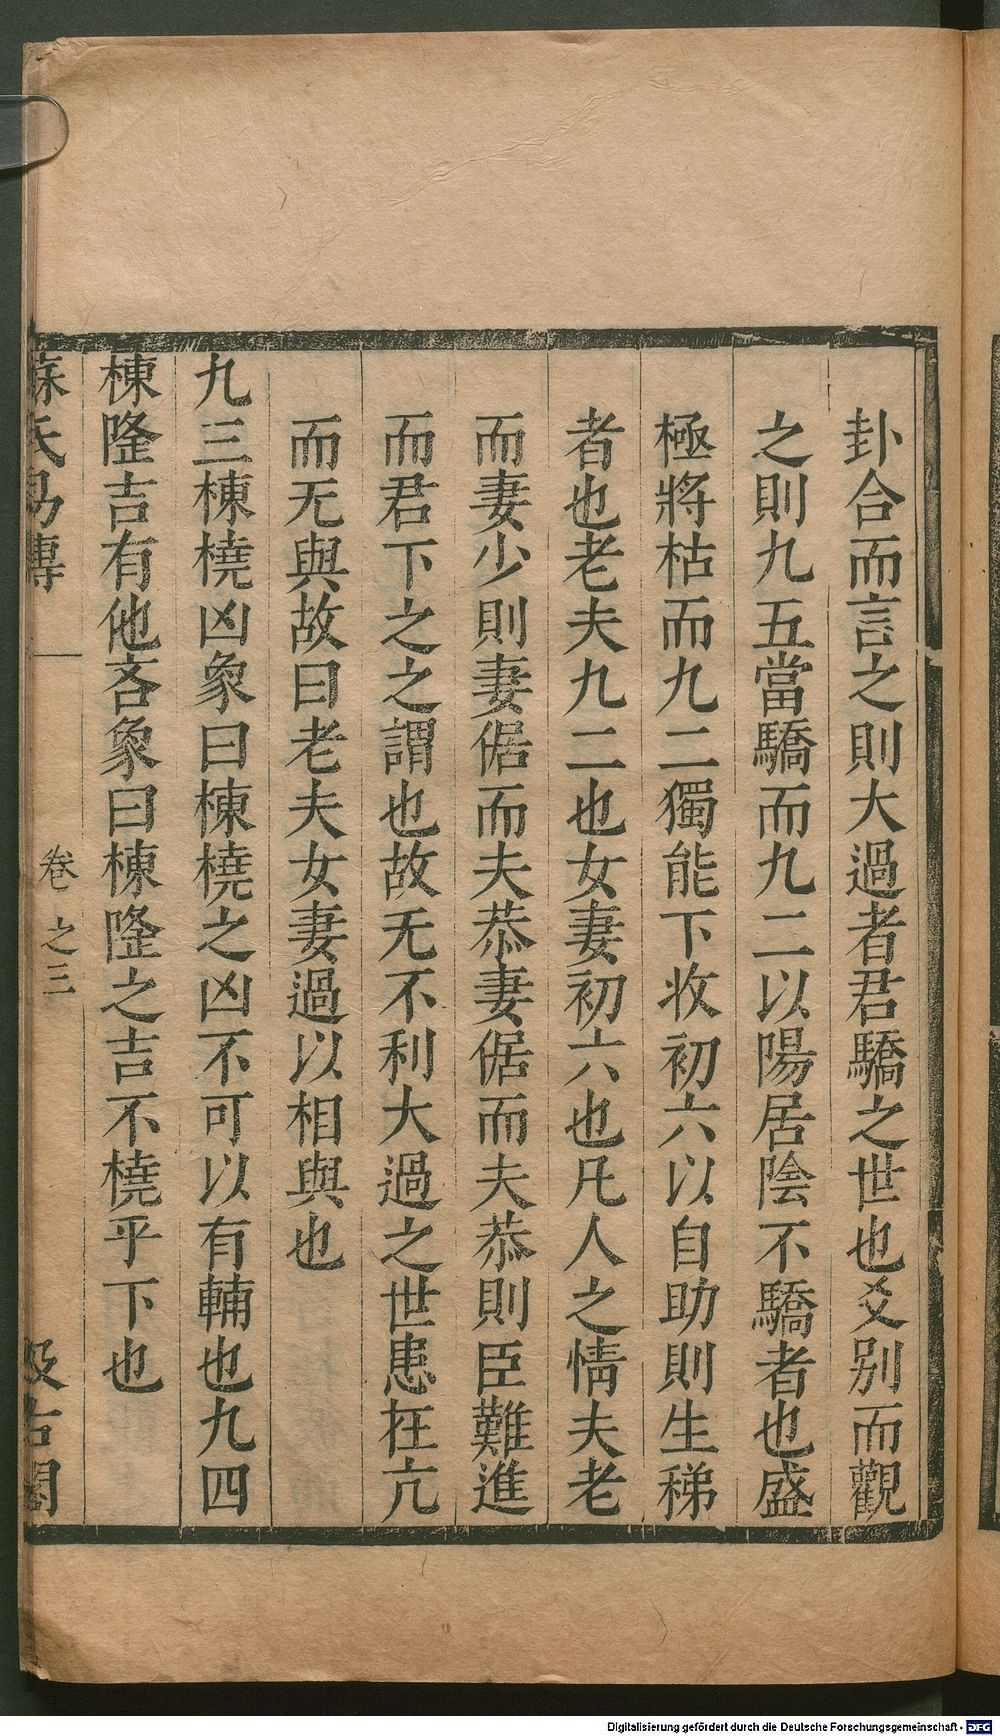 卦合而言之則大過者君驕之世也爻别而觀
之則九五當驕而九二以陽居陰不驕者也盛
極將枯而九二獨能下收初六以自助則生稊
者也老夫九二也女妻初六也凡人之情夫老
而妻少則妻倨而夫恭妻倨而夫恭則臣難進
而君下之之謂也故无不利大過之世患在亢
而无與故曰老夫女妻過以相與也
九三棟橈凶象曰棟橈之凶不可以有輔也九四
棟隆吉有他吝象曰棟隆之吉不橈乎下也
蘇氏易傳
卷之三
汲古閣
Digitalisierung gefördert durch die Deutsche Forschungsgemeinschaft - DFG